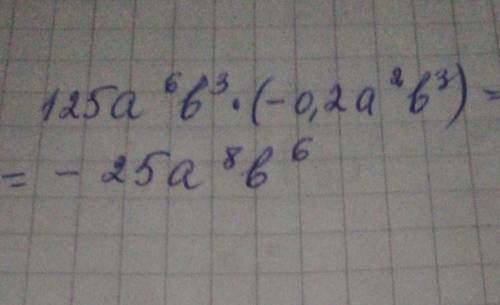 125a⁶b³·(-0,2a²b³)=
= - 25a⁸b⁶